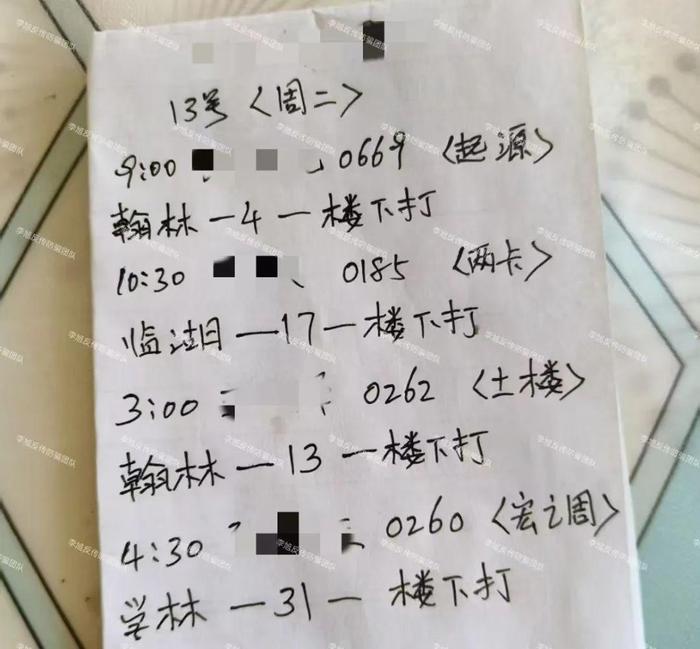 13号〈周二〉
9:00 0669〈起源〉
翰林一4一楼下打
10:30 0185〈两卡〉
临湖一17一楼下打
3:00 0262〈土楼〉
翰林一13一楼下打
4:30 0260〈宏之周〉
学林一31一楼下打
李旭反传防骗团队